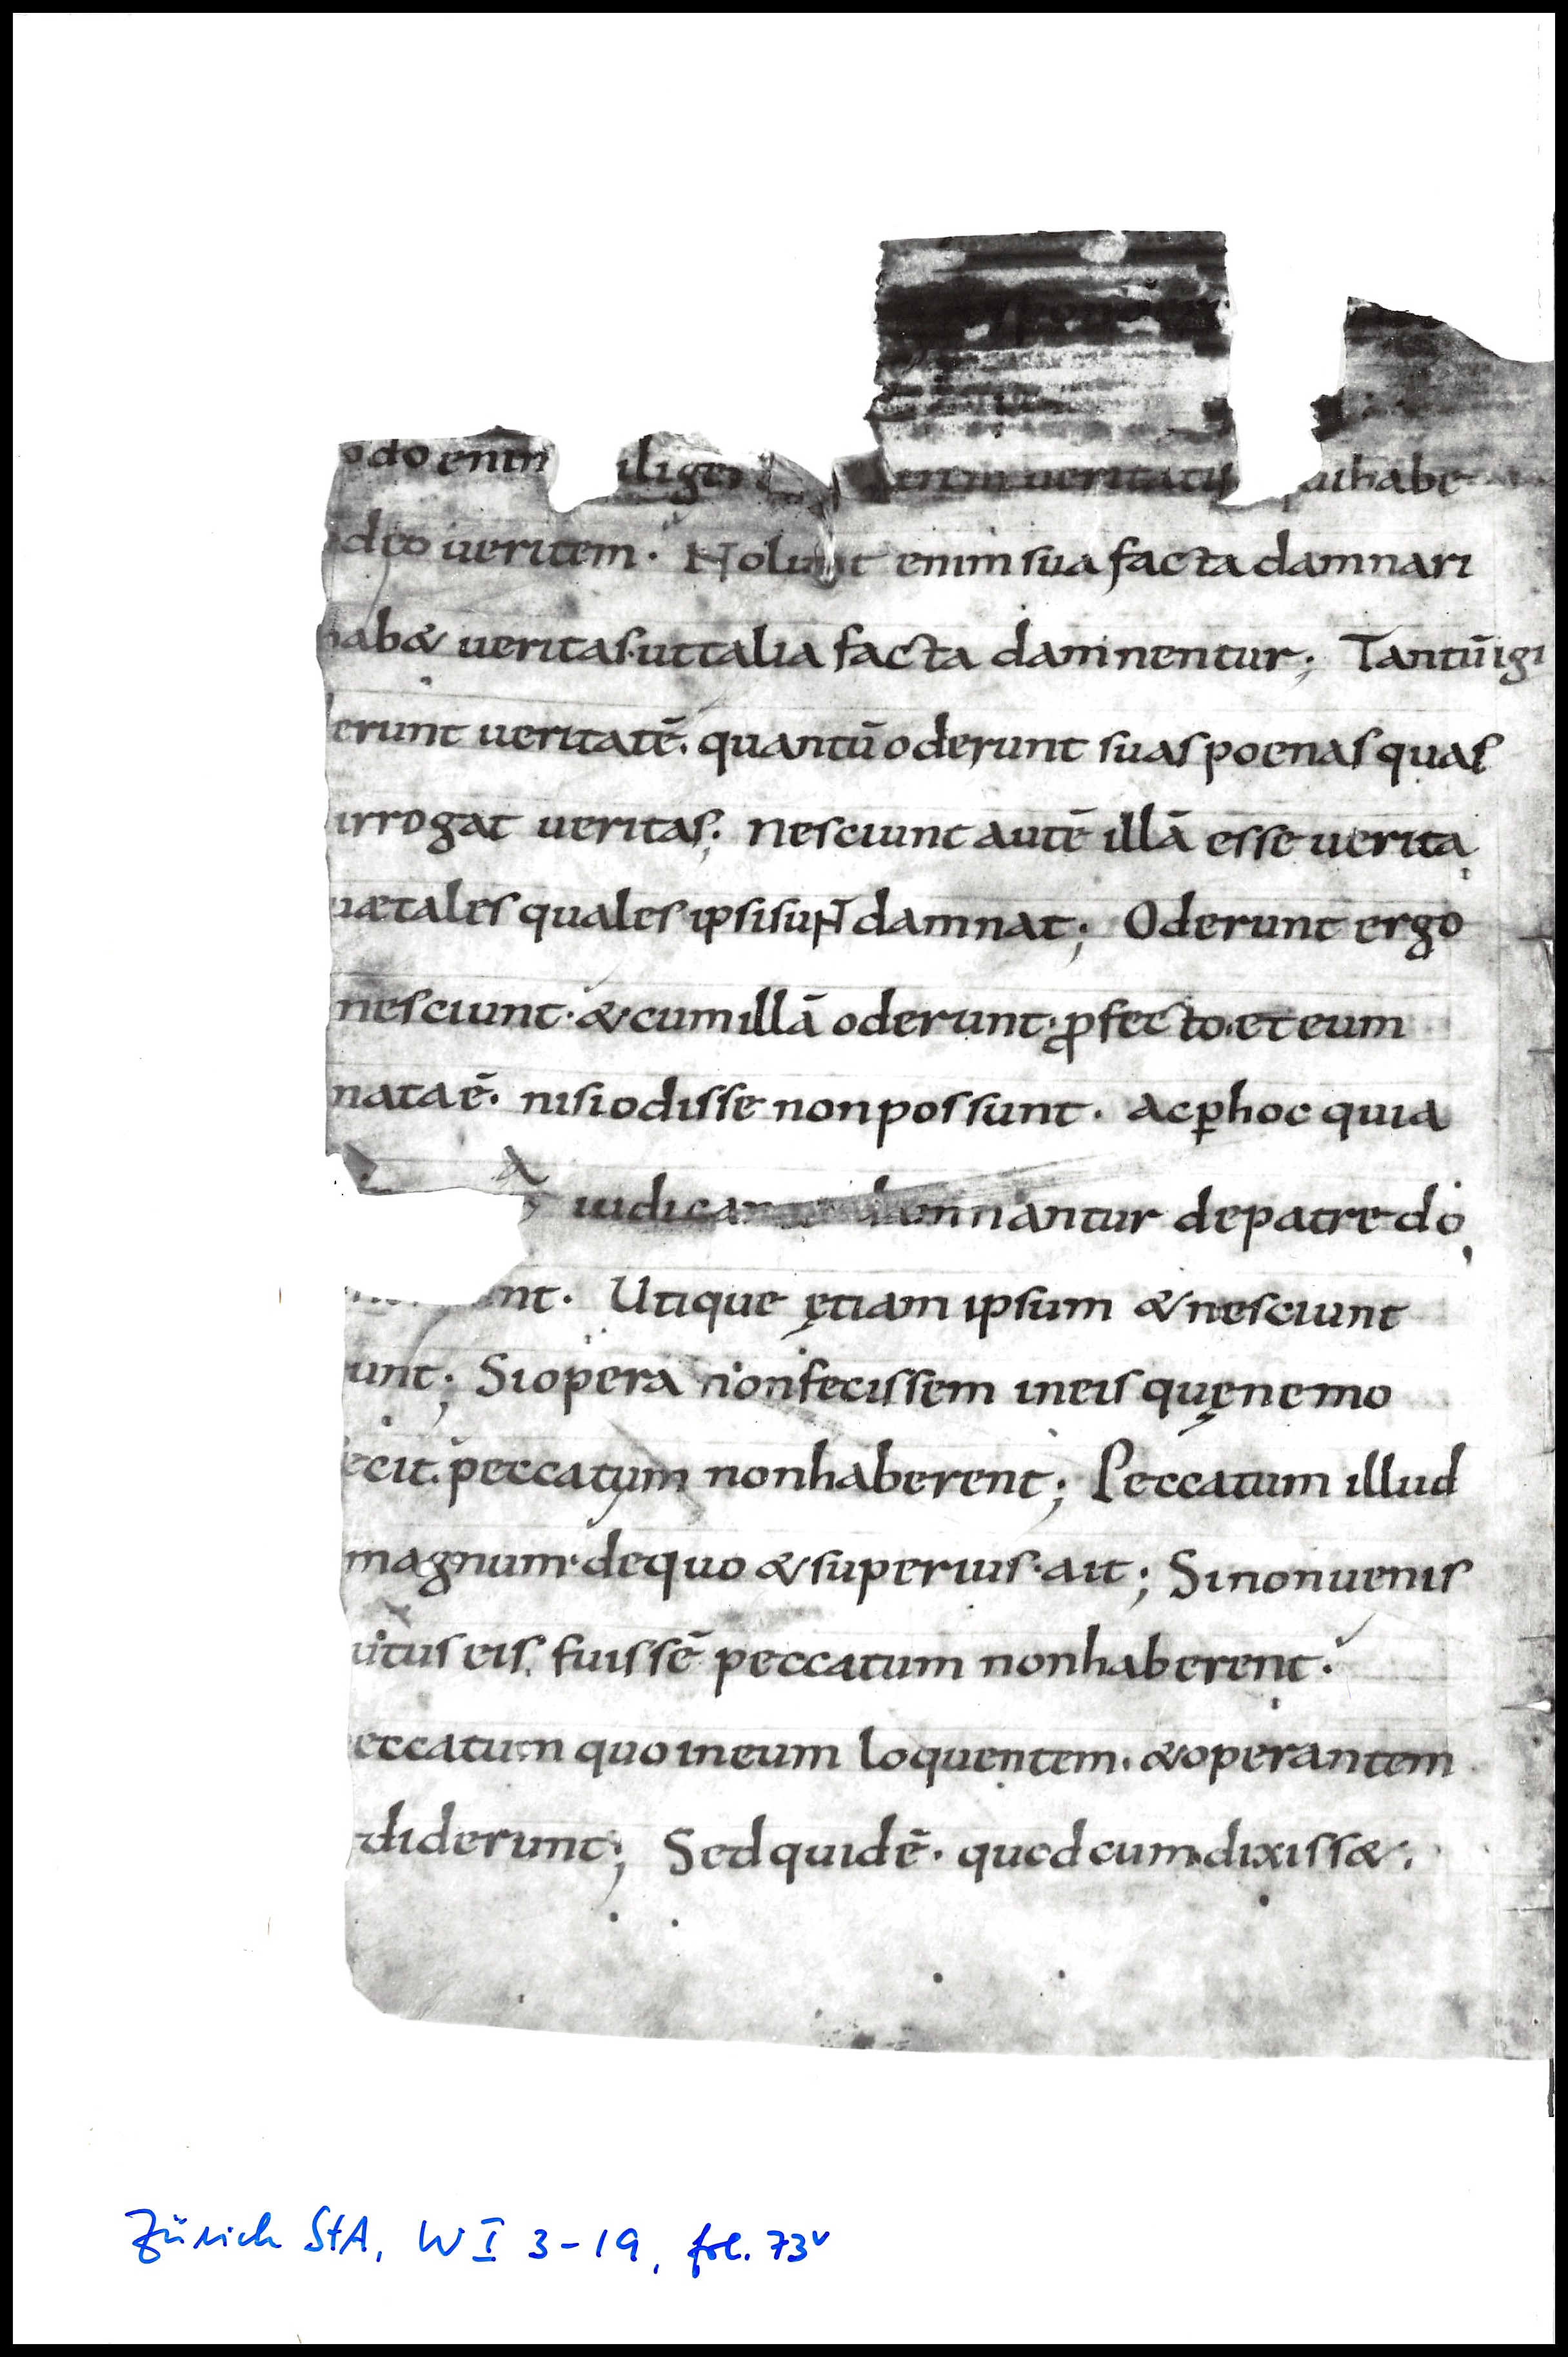 odo enim iligen trem veritatis qui habe
ideo ueritem · Nolunt enim sua facta damnari
hab& ueritas · ut talia facta damnentur ; Tantū igi
erunt ueritatē . quantū oderunt suas poenas quas
irrogat ueritas ; nesciunt autē illā esse uerita
uæ tales quales ipsi suNT damnat ; Oderunt ergo
nesciunt · & cum illā oderunt · ꝓfecto · et eum
nata ē · nisi odisse non possunt · ac ꝑhoc quia
iudica damnantur de patre dō
nt · Utique ętiam ipsum & nesciunt
unt ; Si opera non fecissem in eis quę nemo
ecit · peccatum non haberent ; Peccatum illud
magnum · de quo & superius · ait ; Si non uenis
utus eis . fuissē peccatum non haberent ·
eccatum quo in eum loquentem · & operantem
diderunt ; Sed quid ē · quod cum dixiss& ·
Zürich StA, W I 3-19, fol. 73v